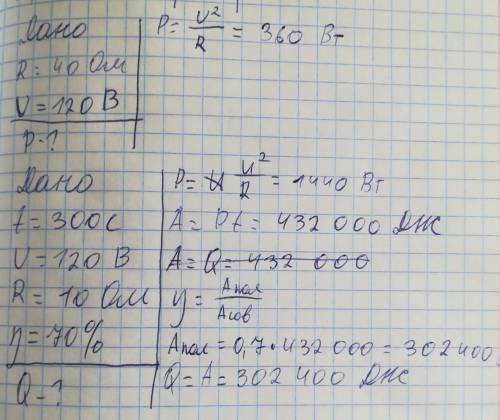 Дано
R = 40 Ом
U = 120 В
P - ?
P = U²/R = 360 Вт
Дано
t = 300 с
U = 120 В
R = 10 Ом
η = 70%
Q - ?
P = U²/R = 1440 Вт
A = Pt = 432 000 Дж
A = Q = 432 000
η = Aпол/Aсов
Aпол = 0,7 • 432 000 = 302 400
Q = A = 302 400 Дж